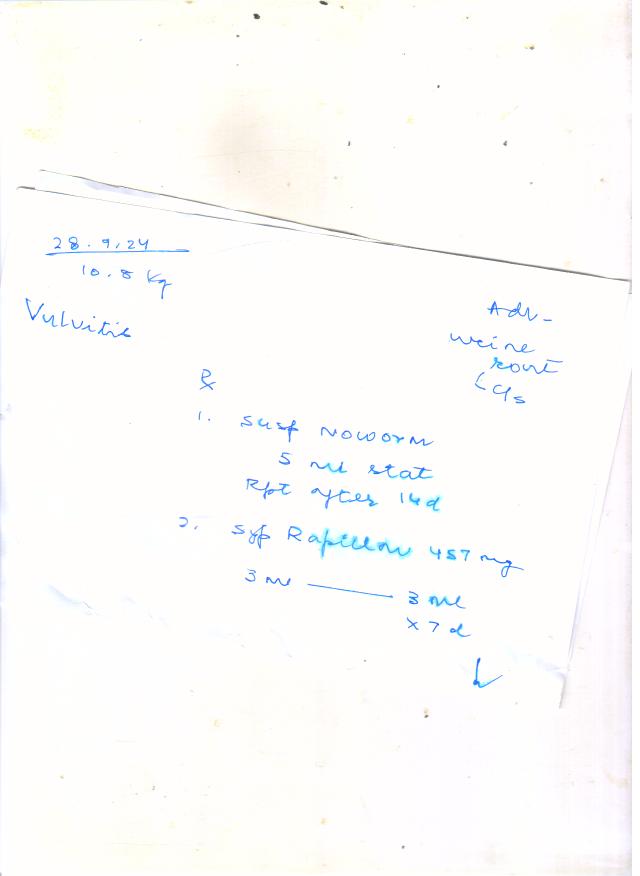 28.9.24
10.8 Kg
Vulvitis
Adv -
urine
rout
C/s
Rx
1. Susp Noworm
5 ml stat
Rpt after 14d
2. Syp 457 mg
3 ml — 3 ml
x 7 d